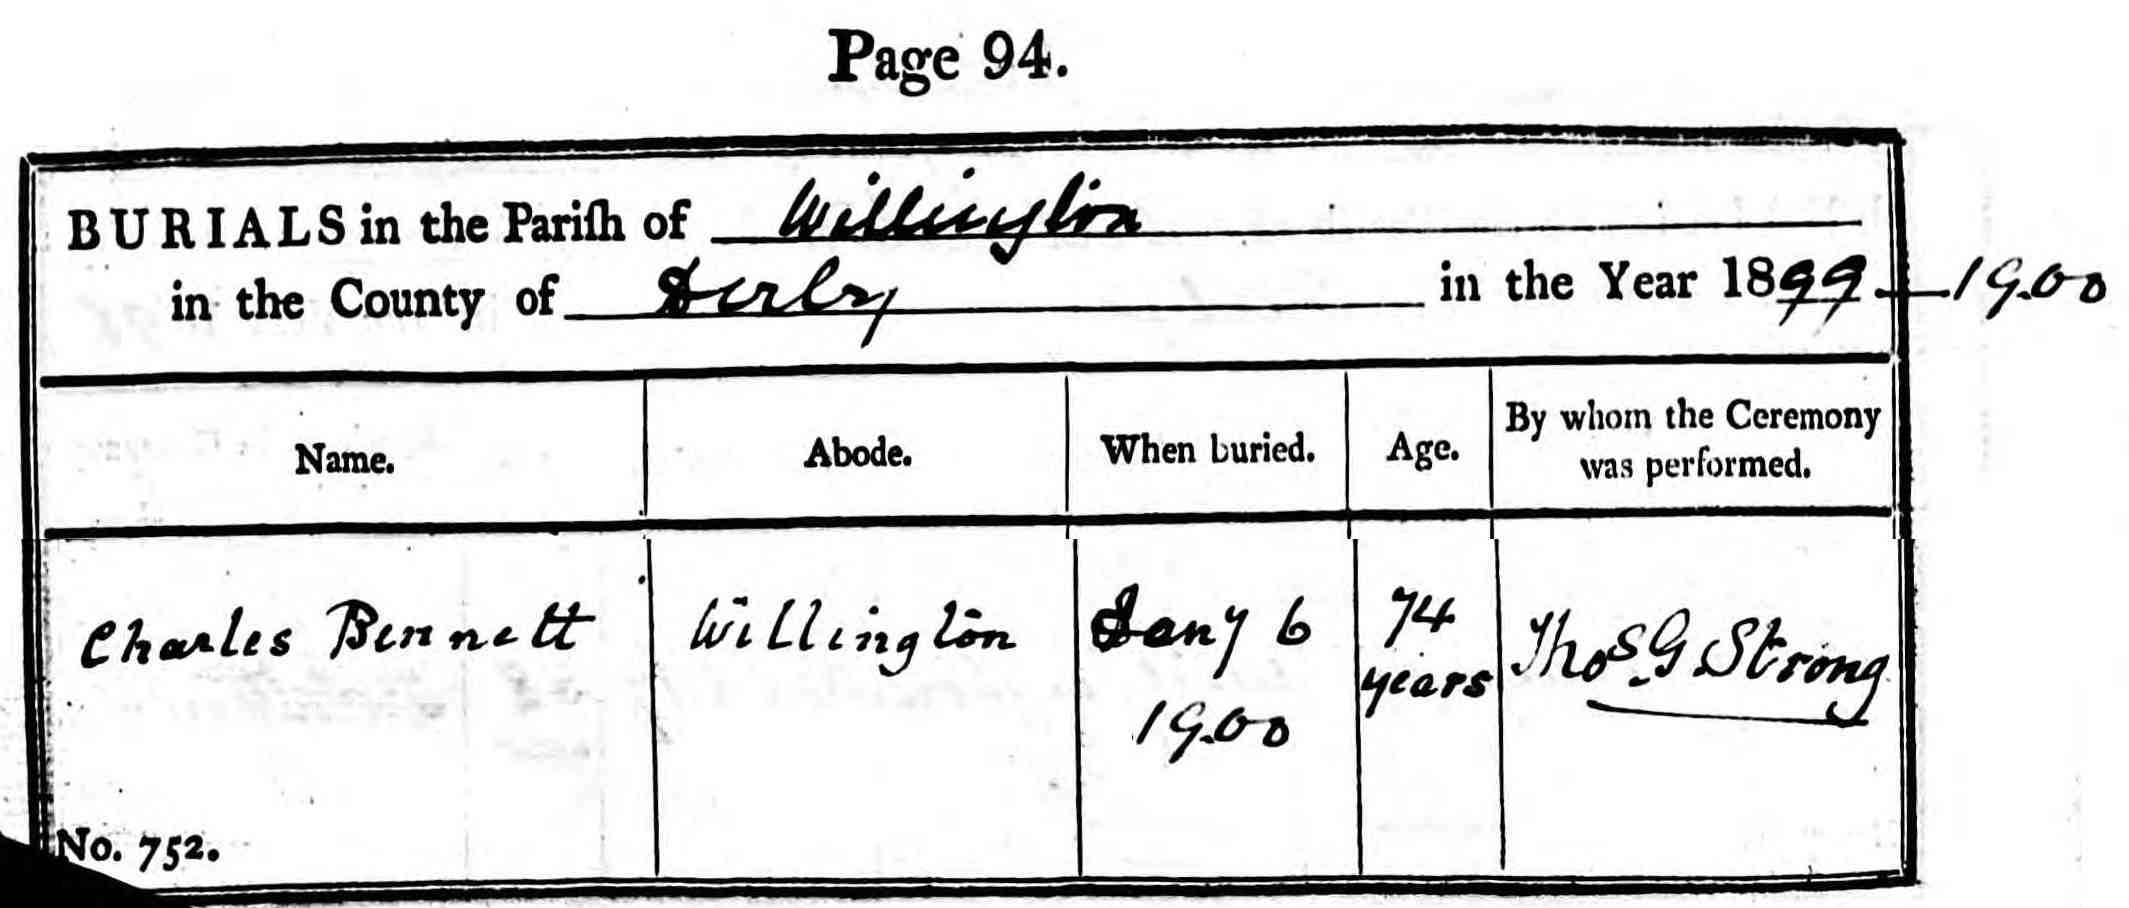 Page 94.
BURIALS in the Pariſh of Willington
in the County of Derby in the Year 1899 — 1900
Name. Abode. When buried. Age. By whom the Ceremony was performed.
Charles Bennett Willington Jany 6 1900 74 years Thos. G Strong
No. 752.